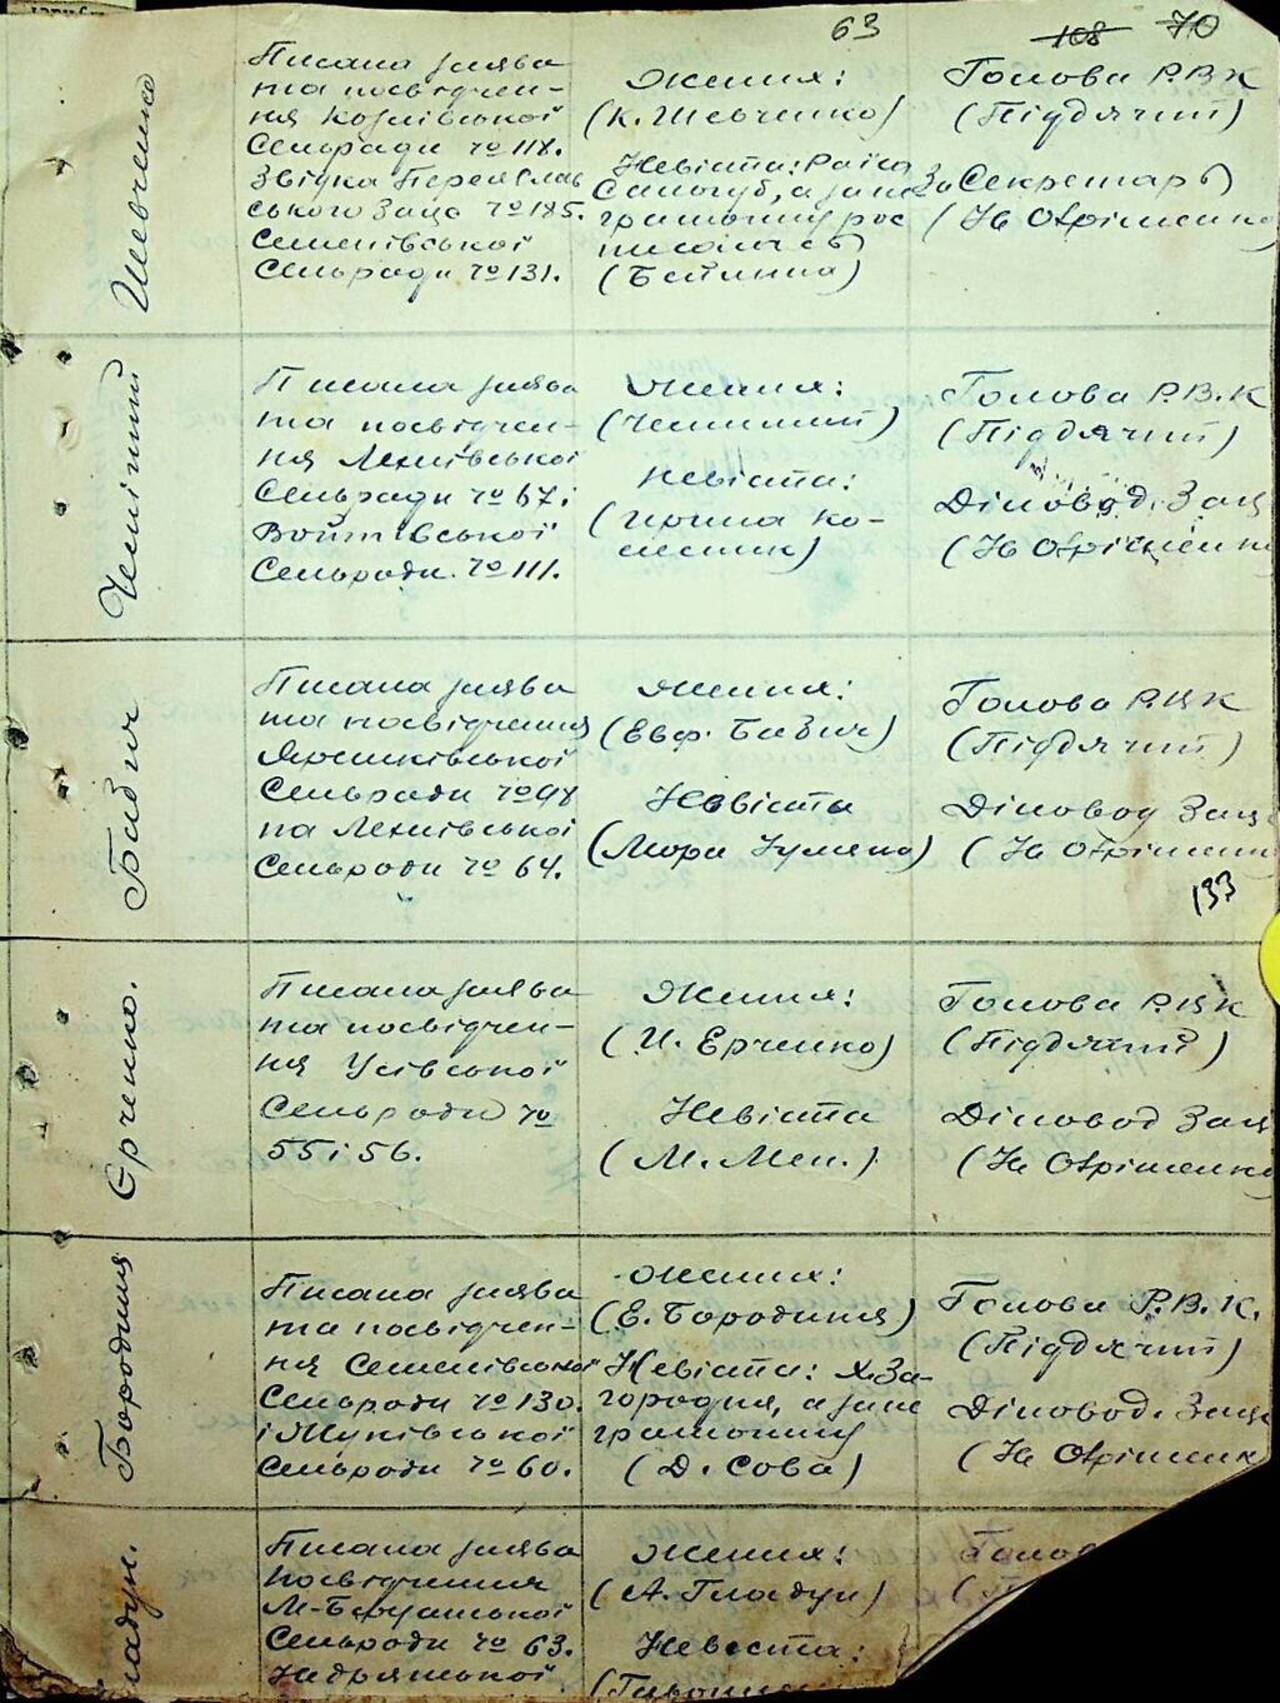 63
108 70
Шевченко
Писана заява
та посвідчен-
ня Козлівської
Сельради № 118.
Звідка Переяслав
ського Загса № 185.
Семенівської
Сельради № 131.
Жених:
(К. Шевченко)
Невіста: Раїса
Самогуб, а за не
грамотну рос
писалась
(Бейлина)
Голова Р.В.К
(Підлячий)
За Секретаръ
(Охріменко
Чепіпий
Писана заява
та посвідчен-
ня Лехнівської
Сельради № 67 і
Войтівської
Сельради № 111.
Жених:
Невіста:
(Ирина Ко-
лесник)
Голова Р.В.К
(Підлячий)
Діловод. Загс
(Охріменк
Бабич
Писана заява
та посвідчення
Ярешківської
Сельради № 98
та Лехнівської
Сельради № 64.
Жених:
(Евф. Бабич)
Невіста
Голова Р.В.К
(Підлячий)
Діловод Загс
(Охріменк
133
Єрченко.
Писана заява
та посвідчен-
ня Усівської
Сельради №
55 і 56.
Жених:
(И. Ерченко)
Невіста
(М. Мен.)
Голова Р.В.К
(Підлячий)
Діловод Загс
(Охріменко
Бородиня
Писана заява
та посвідчен-
ня Семенівської
Сельради № 130.
і Жуківської
Сельради № 60.
Жених:
(Е. Бородиня)
Невіста: Х. За-
городня, а за не
грамотну
(Д. Сова)
Голова Р.В.К.
(Підлячий)
Діловод. Загс
(Охріменк
ладун.
Писана заява
посвідчення
Сельради № 63.
Жених:
(А. Гладун)
Невеста:
Голов